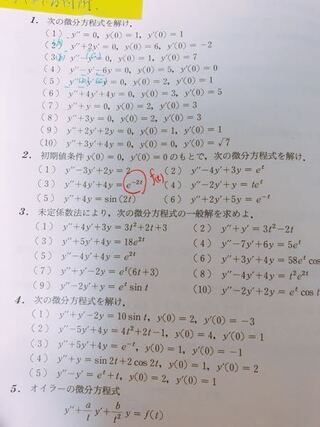 1. 次の微分方程式を解け.
(1) y''=0, y(0)=1, y'(0)=1
(2) y''+2y'=0, y(0)=6, y'(0)=-2
(3) =0, y(0)=1, y'(0)=7
(4) y''-y'-6y=0, y(0)=5, y'(0)=0
(5) =0, y(0)=2, y'(0)=1
(6) y''+4y'+4y=0, y(0)=3, y'(0)=5
(7) y''+y=0, y(0)=2, y'(0)=3
(8) y''+3y=0, y(0)=2, y'(0)=3
(9) y''+2y'+2y=0, y(0)=1, y'(0)=1
(10) y''-2y'+2y=0, y(0)=0, y'(0)=√7
2. 初期値条件 y(0)=0, y'(0)=0 のもとで, 次の微分方程式を解け.
(1) y''-3y'+2y=2 (2) y''-4y'+3y=e^t
(3) y''+4y'+4y=e^{-2t} f(t) (4) y''-2y'+y=te^t
(5) y''+4y=sin(2t) (6) y''+2y'+5y=e^{-t}
3. 未定係数法により, 次の微分方程式の一般解を求めよ.
(1) y''+4y'+3y=3t²+2t+3 (2) y''+y'=3t²-2t
(3) y''+5y'+4y=18e^{2t} (4) y''-7y'+6y=5e^t
(5) y''-4y'+4y=e^{2t} (6) y''+3y'+4y=58e^t cos
(7) y''+y'-2y=e^t(6t+3) (8) y''-4y'+4y=t²e^{2t}
(9) y''-y'-2y=e^t sin t (10) y''-2y'+2y=e^t cos
4. 次の微分方程式を解け.
(1) y''+y'-2y=10 sin t, y(0)=2, y'(0)=-3
(2) y''-5y'+4y=4t²+2t-1, y(0)=4, y'(0)=1
(3) y''+5y'+4y=e^{-t}, y(0)=1, y'(0)=-1
(4) y''+y=sin 2t+2 cos 2t, y(0)=1, y'(0)=2
(5) y''-y'=e^t+t, y(0)=2, y'(0)=1
5. オイラーの微分方程式
y''+\frac{a}{t}y'+\frac{b}{t²}y=f(t)